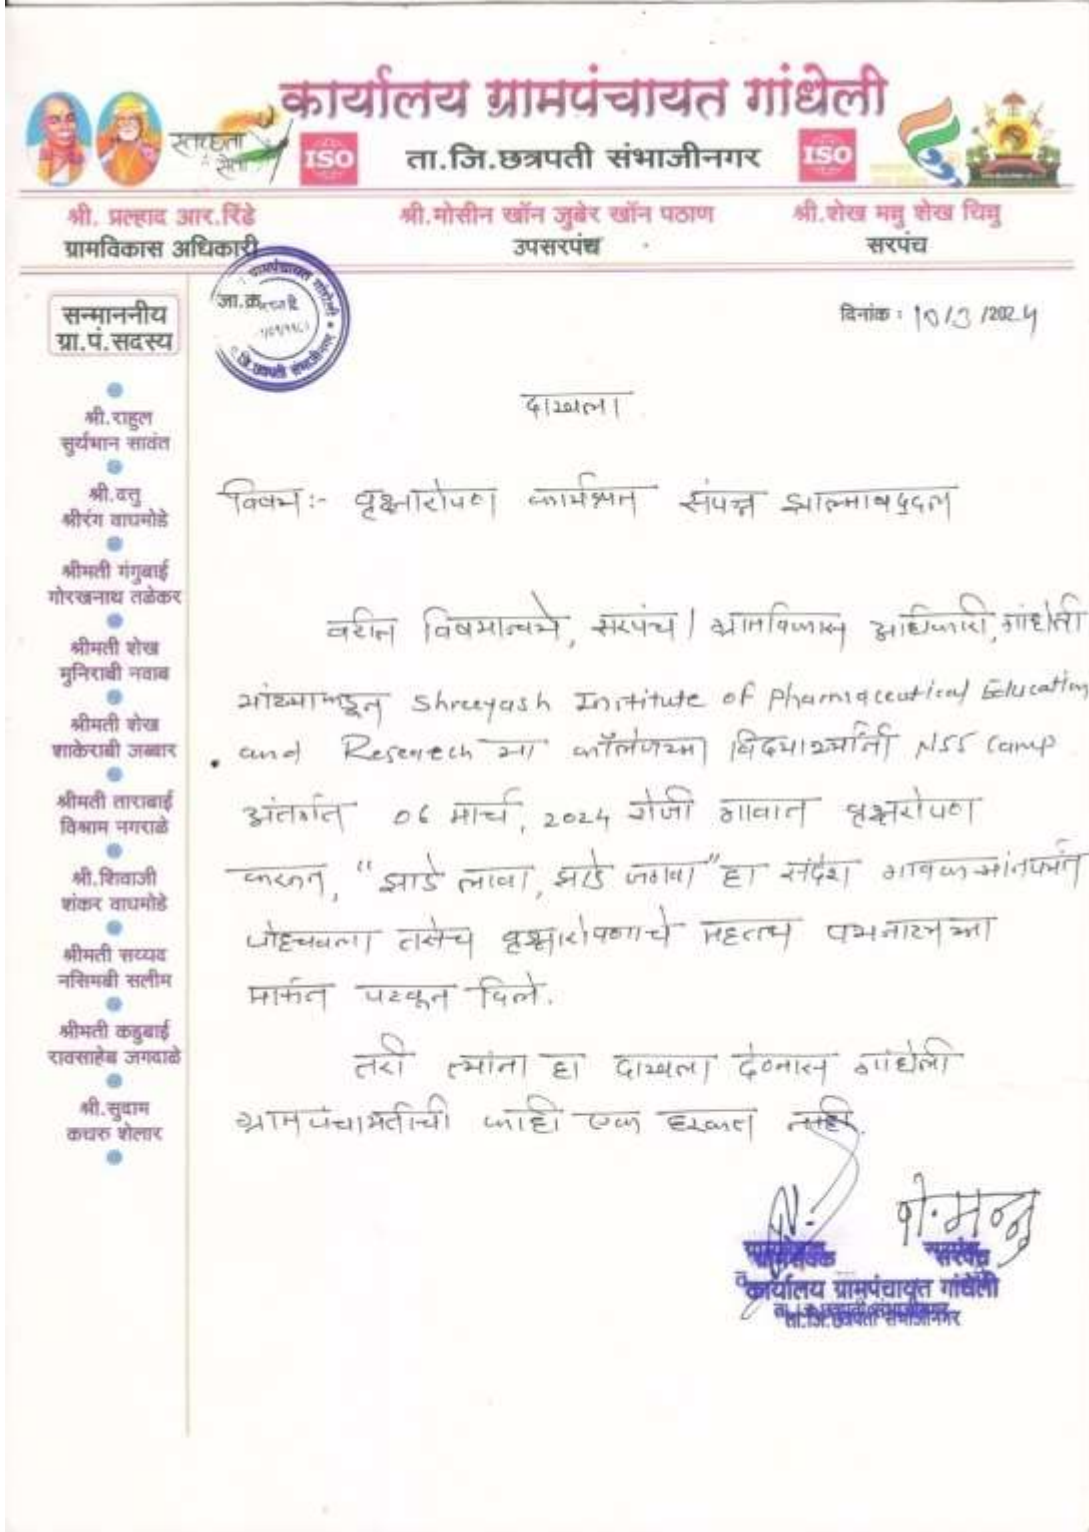 कार्यालय ग्रामपंचायत गांधेली
स्वच्छता
ISO
ता.जि.छत्रपती संभाजीनगर
ISO
श्री. प्रल्हाद आर.रिंढे
ग्रामविकास अधिकारी
श्री.मोसीन खॉन जुबेर खॉन पठाण
उपसरपंच
श्री.शेख मन्नु शेख चिन्नु
सरपंच
सन्माननीय
ग्रा.पं.सदस्य
श्री.राहुल
सुर्यभान सावंत
श्री.दत्तु
श्रीरंग वाघमोडे
श्रीमती गंगुबाई
गोरखनाथ तळेकर
श्रीमती शेख
मुनिराबी नवाब
श्रीमती शेख
शाकेराबी जब्बार
श्रीमती ताराबाई
विश्राम नगराळे
श्री.शिवाजी
शंकर वाघमोडे
श्रीमती सय्यद
नसिमबी सलीम
श्रीमती कडुबाई
रावसाहेब जगदाळे
श्री.सुदाम
कचरु शेलार
जा.क्र.
ग्रामपंचायत गांधेली
जि.छत्रपती संभाजीनगर
दिनांक : 10/3/2024
दाखला
विषय:- वृक्षारोपण कार्यक्रम संपन्न झाल्याबद्दल
वरील विषयान्वये, सरपंच / ग्रामविकास अधिकारी, गांधेली
यांच्याकडून Shreeyash Institute of Pharmaceutical Education
and Research या कॉलेजच्या विद्यार्थ्यांनी NSS Camp
अंतर्गत 06 मार्च, 2024 रोजी गावात वृक्षरोपण
करून, "झाडे लावा, झाडे जगवा" हा संदेश गावकऱ्यांनपर्यंत
पोहचवला तसेच वृक्षारोपणाचे महत्त्व पथनाट्याच्या
मार्फत पटवून दिले.
तरी त्यांना हा दाखला देण्यास गांधेली
ग्रामपंचायतीची काही एक हरकत नाही.
शे.मन्नु
ग्रामसेवक
सरपंच
कार्यालय ग्रामपंचायत गांधेली
ता.जि.छत्रपती संभाजीनगर